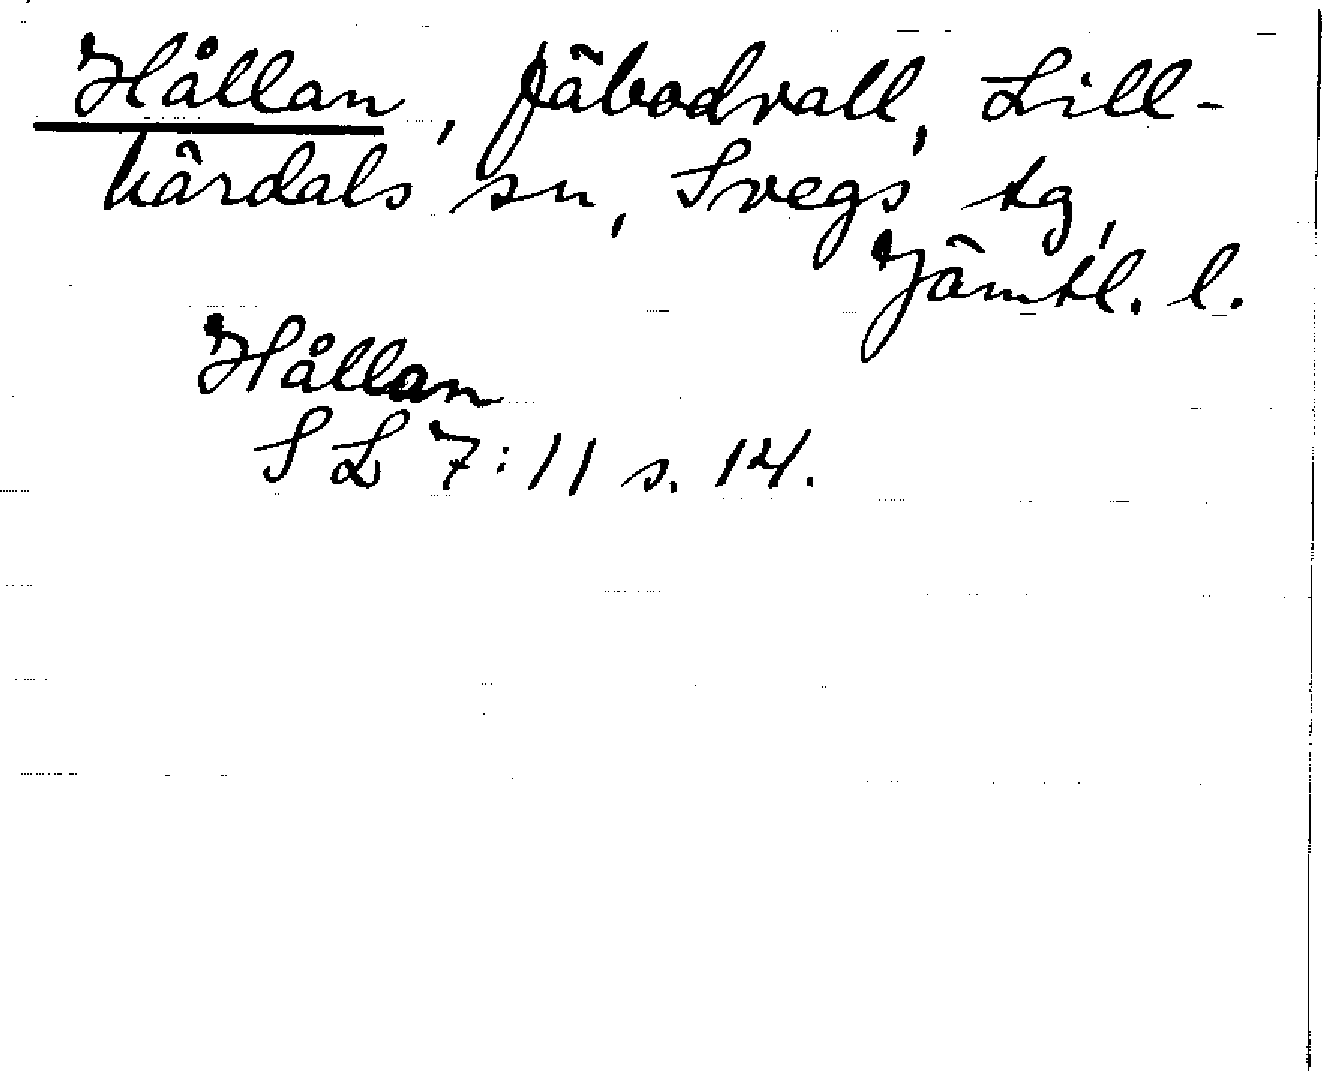 Hållan, fäbodvall, Lill-
härdals sn, Svegs tg,
Jämtl. l.
Hållan
SL 7:11 s. 14.